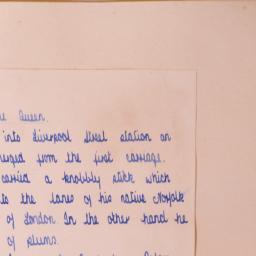 Queen.
into Liverpool Street station on
from the first carriage.
carried a knobbly stick which
to the lanes of his native Norfolk
of London In the other hand he
of plums.